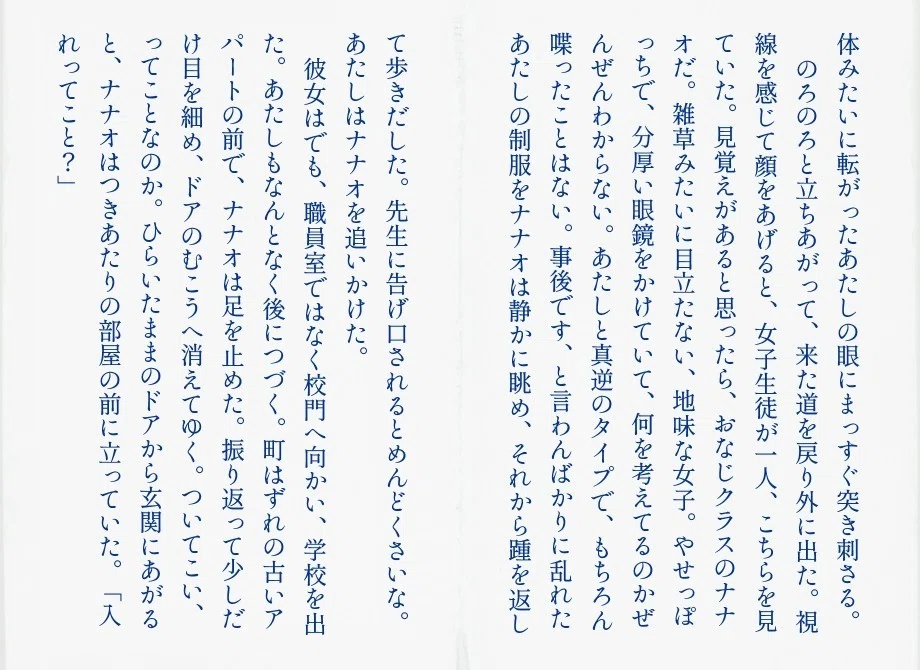 体みたいに転がったあたしの眼にまっすぐ突き刺さる。
のろのろと立ちあがって、来た道を戻り外に出た。視
線を感じて顔をあげると、女子生徒が一人、こちらを見
ていた。見覚えがあると思ったら、おなじクラスのナナ
オだ。雑草みたいに目立たない、地味な女子。やせっぽ
っちで、分厚い眼鏡をかけていて、何を考えてるのかぜ
んぜんわからない。あたしと真逆のタイプで、もちろん
喋ったことはない。事後です、と言わんばかりに乱れた
あたしの制服をナナオは静かに眺め、それから踵を返し
て歩きだした。先生に告げ口されるとめんどくさいな。
あたしはナナオを追いかけた。
彼女はでも、職員室ではなく校門へ向かい、学校を出
た。あたしもなんとなく後につづく。町はずれの古いア
パートの前で、ナナオは足を止めた。振り返って少しだ
け目を細め、ドアのむこうへ消えてゆく。ついてこい、
ってことなのか。ひらいたままのドアから玄関にあがる
と、ナナオはつきあたりの部屋の前に立っていた。「入
れってこと？」